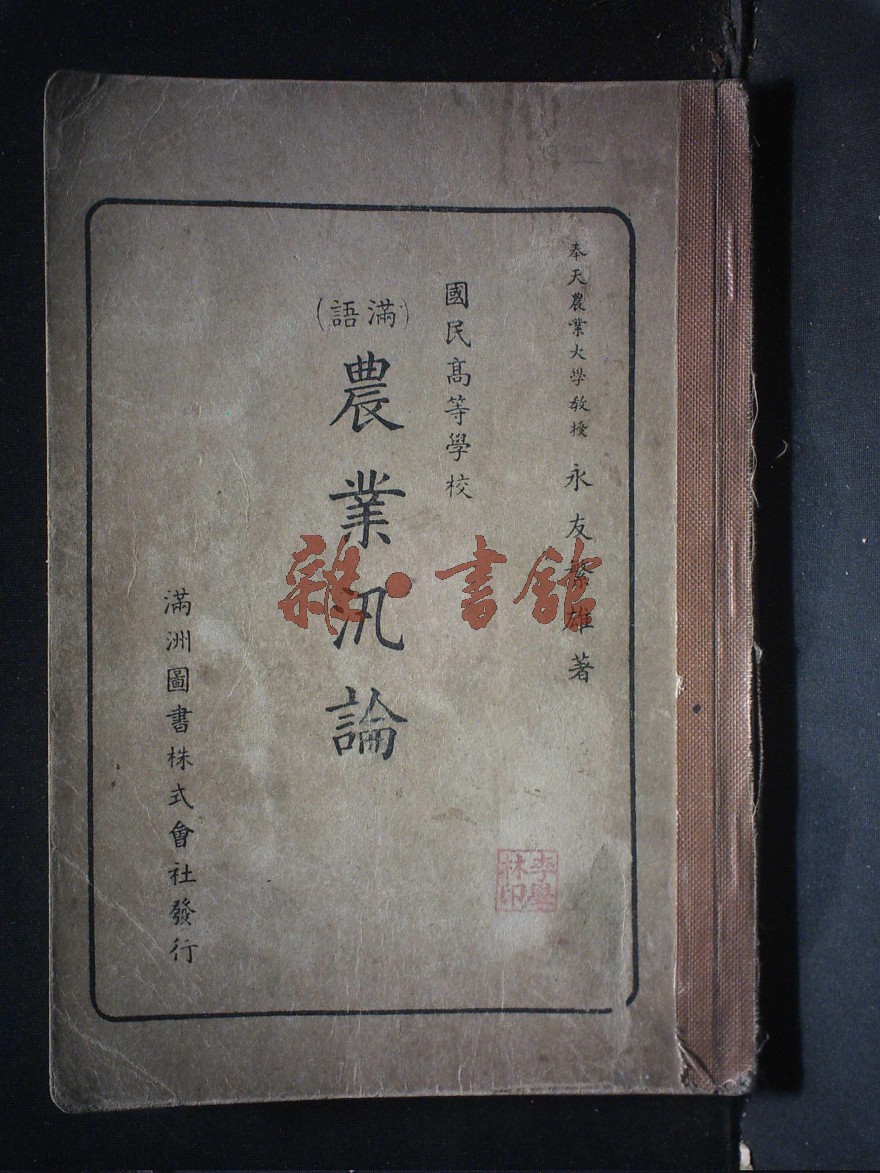 奉天農業大學教授 永友繁雄著
國民髙等學校
(滿語)
農業汎論
滿洲圖書株式會社發行
李學林印
雜·書館